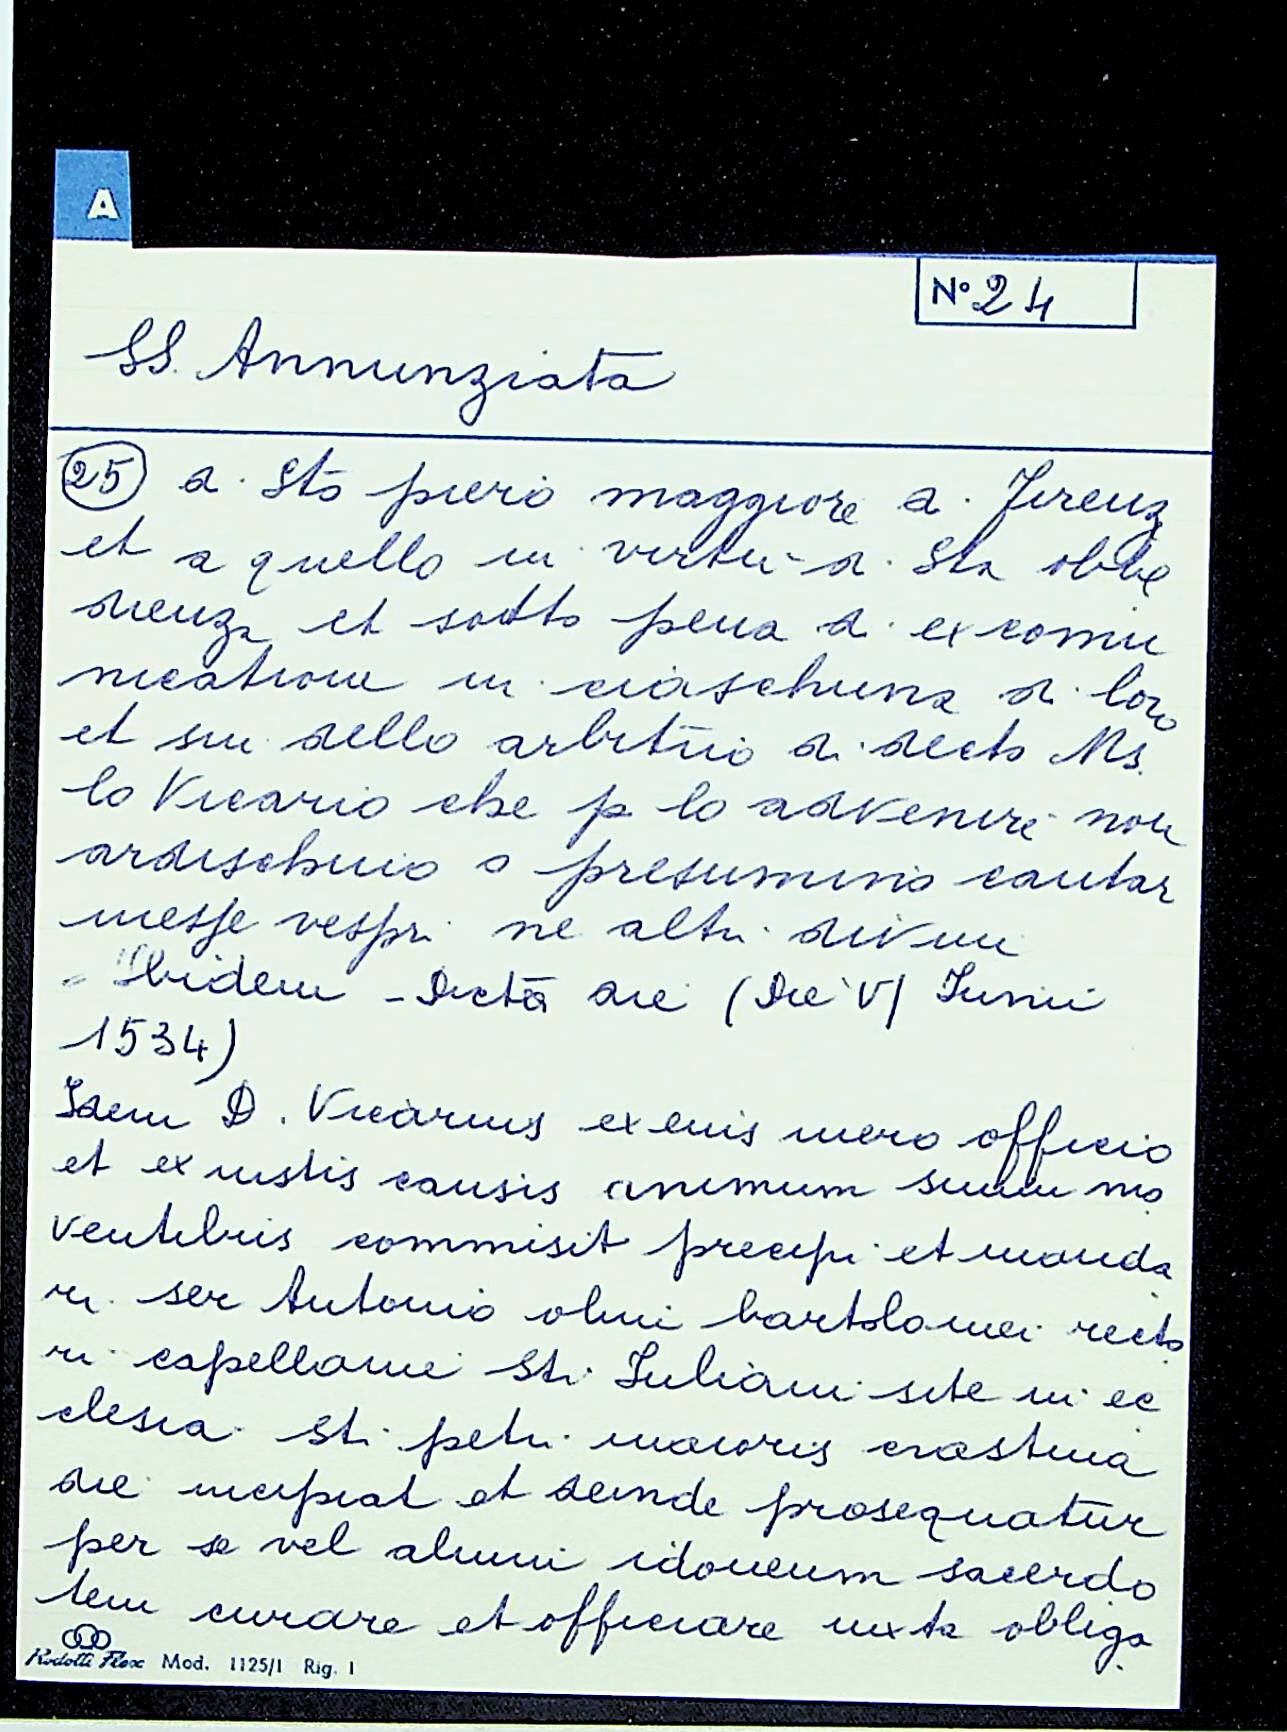 A
N° 24
SS. Annunziata
25 a. Sto piero maggiore a. Firenz
et a quello in virtù d. Sta obbe
dienza et sotto pena d. excomu
nicatione in ciaschuna di loro
et sui dello arbitrio di decto Ms.
lo Vicario che p lo advenire non
ardischino o presumino cantar
messe vespri ne altri divini
Ibidem - Dicta die (Die V Junii
1534)
Idem D. Vicarius ex eius mero officio
et ex iustis causis animum suum mo
ventibus commisit precipi et manda
ri ser Antonio olim bartolomei recto
ri capellanie Sti Juliani site in ec
clesia Sti petri maioris crastina
die incipiat et deinde prosequatur
per se vel alium idoneum sacerdo
tem curare et officiare iuxta obliga
Rodotti Flex Mod. 1125/1 Rig. 1